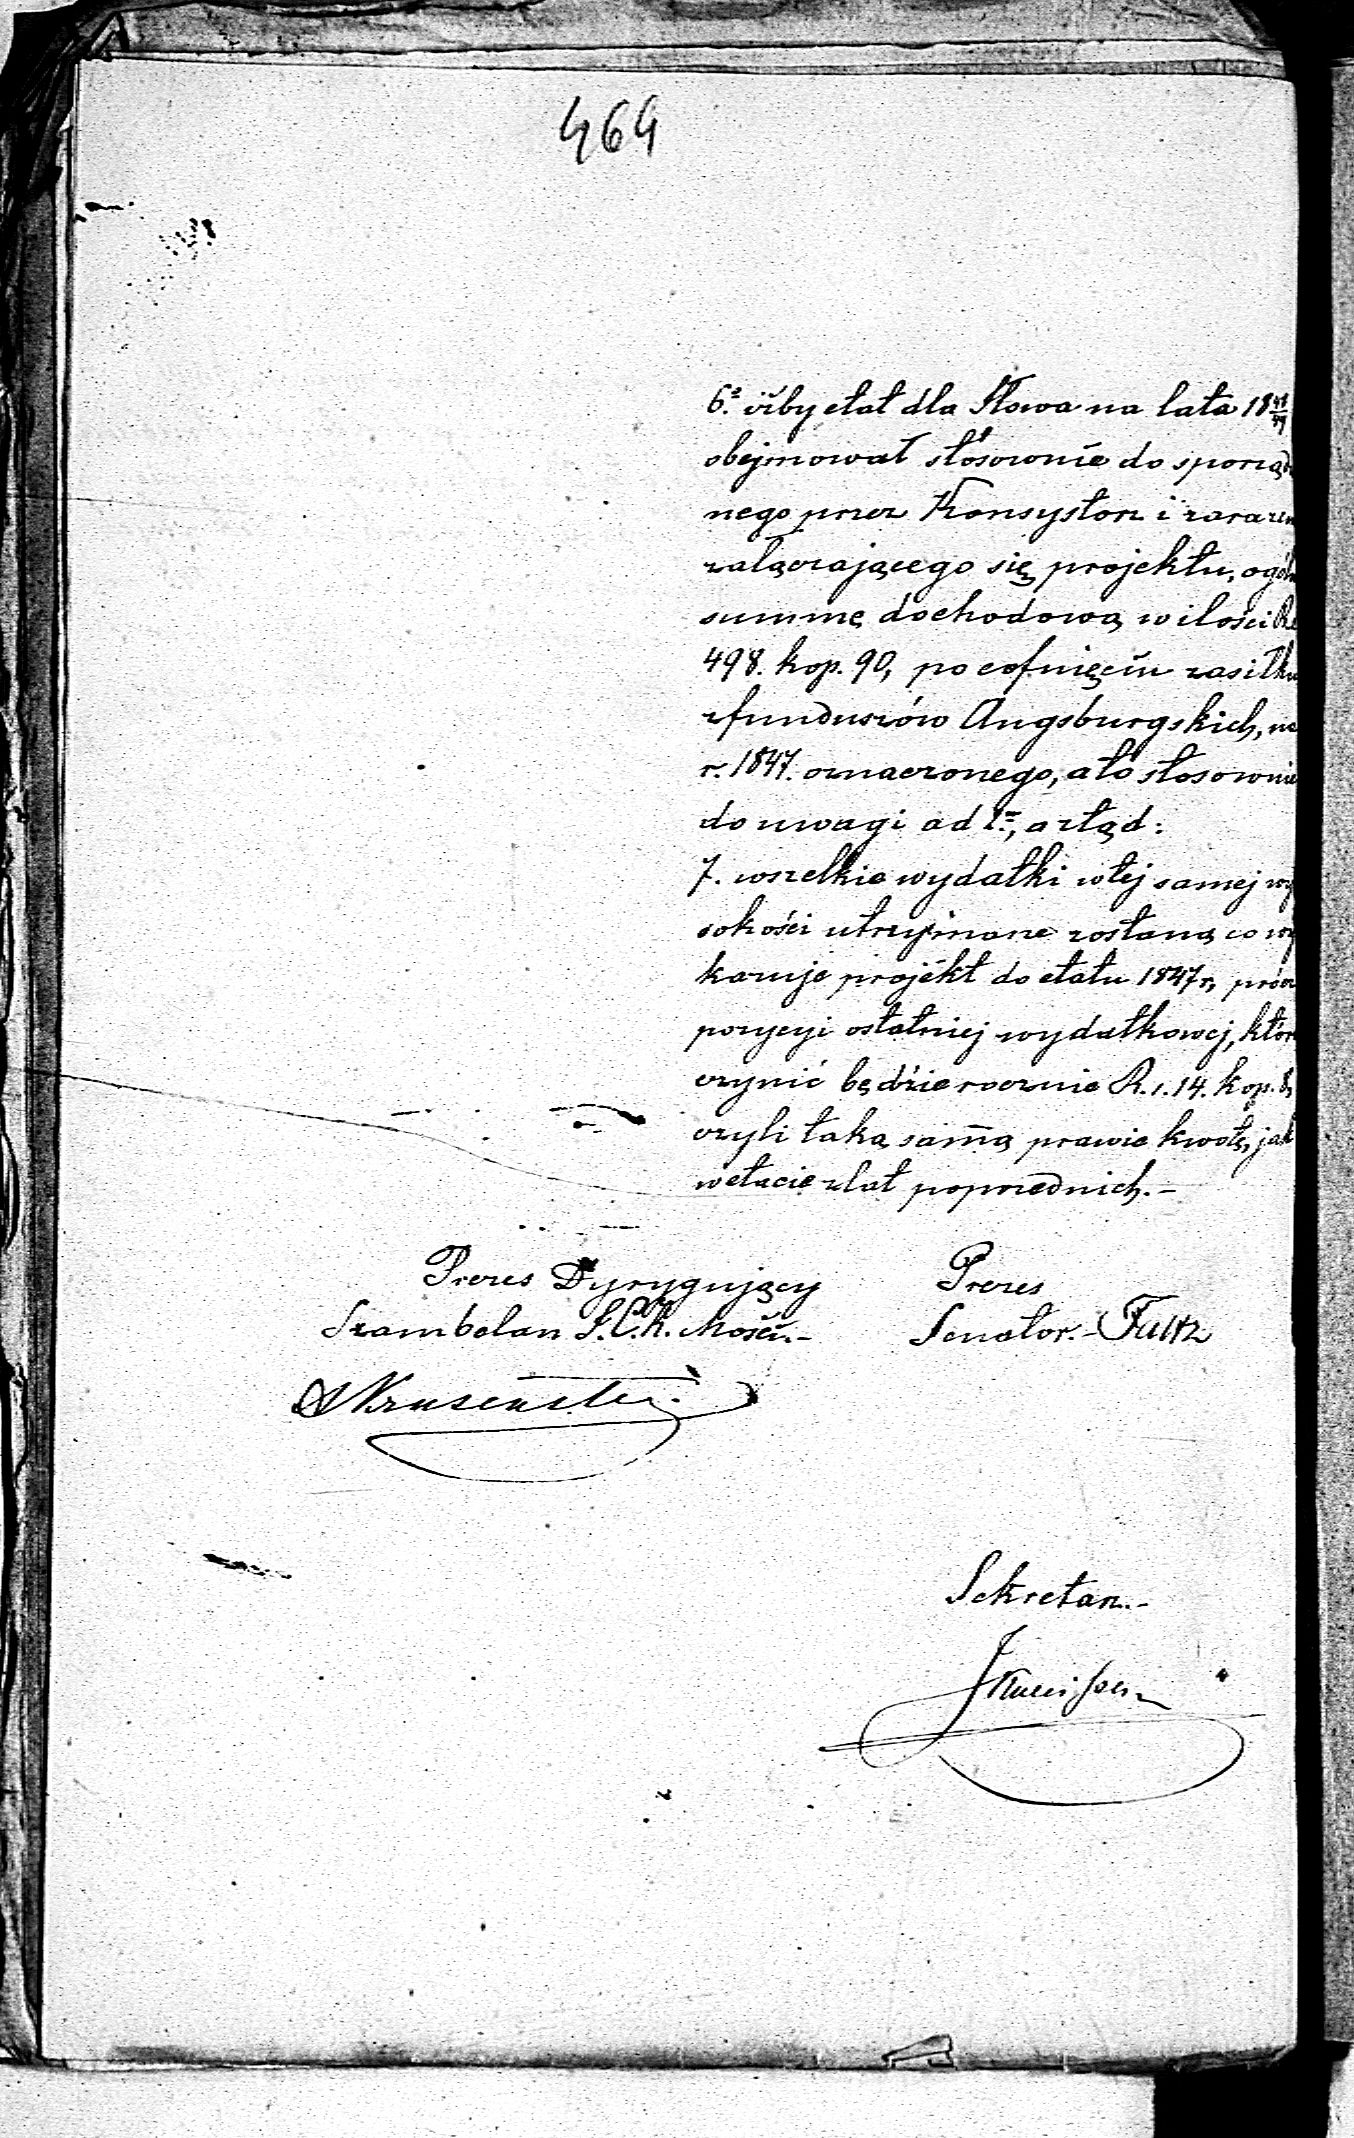 464
6. iżby etat dla Iłowa na lata 18 48/49
obejmował stosownie do sporząd
nego przez Konsystorz i zarazem
załączającego się projektu, ogóln
summę dochodową w ilości Rs
498. kop. 90, po cofnięciu zasiłku
z funduszów Augsburgskich, na
r. 1847. oznaczonego, a to stosownie
do uwagi ad 1., a ztąd:
7. wszelkie wydatki w tej samej wy
sokości utrzymane zostaną co wy
kazuje projekt do etatu 1847 r, prócz
pozycyi ostatniej wydatkowej, któr
czynić będzie rocznie R. s. 14. kop. 8,
czyli taką samą prawie kwotę, jak
w etacie z lat poprzednich.-
Prezes Dyrygujący Prezes
Szambelan J. C. K. Mości.- Senator.-
Sekretarz.-